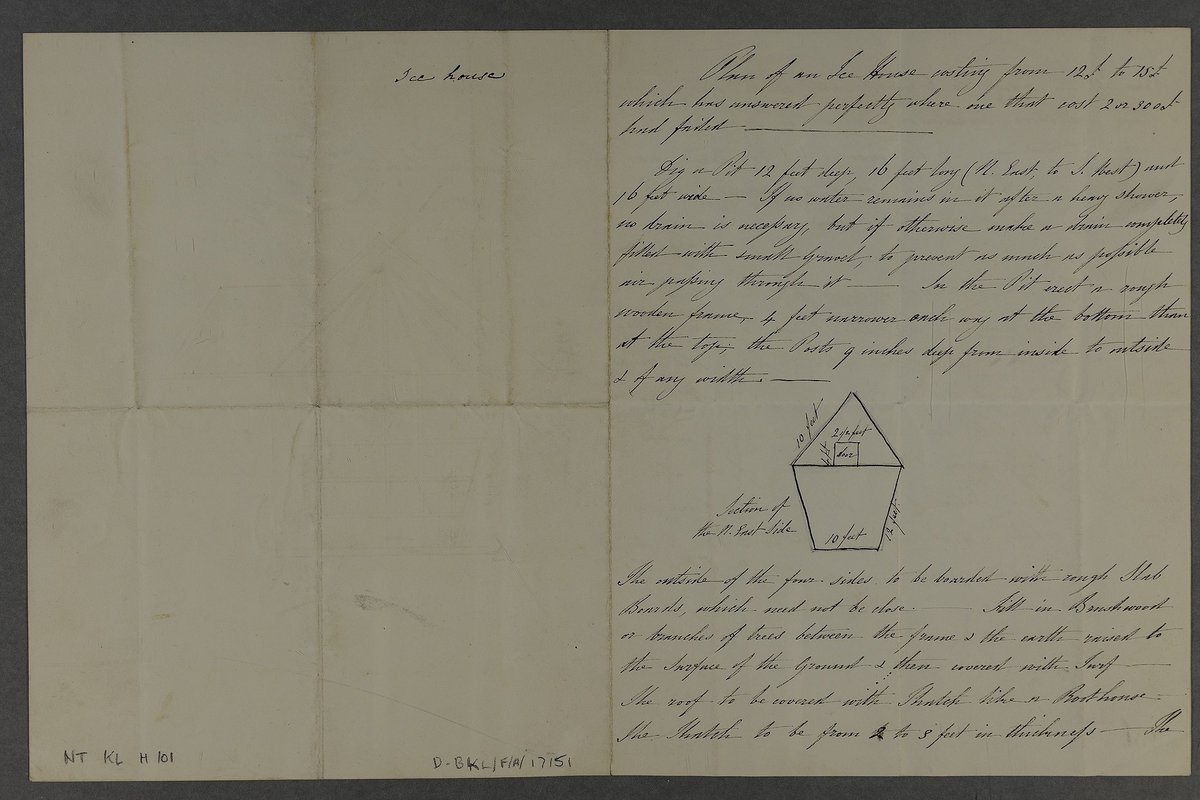 Ice house
NT KL H 101
D-BKL/F/A/17/51
Plan of an Ice House costing from 12£ to 15£
which has answered perfectly where one that cost 2 or 300£
had failed
Dig a Pit 12 feet deep, 16 feet long (N. East to S. West) and
16 feet wide — If no water remains in it after a heavy shower,
no drain is necessary, but if otherwise make a drain completely
filled with small Gravel, to prevent as much as possible
air passing through it — In the Pit erect a rough
wooden frame, 4 feet narrower each way at the bottom than
at the top; the Posts 9 inches deep from inside to outside
& of any width. —
10 feet
2 1/2 feet
4 ft
door
Section of
the N. East Side
10 feet
12 feet
The outside of the four sides to be boarded with rough Slab
Boards, which need not be close. — Fill in Brushwood
or branches of trees between the frame & the earth raised to
the Surface of the Ground & then covered with Turf —
The roof to be covered with Thatch like a
The Thatch to be from 2 to 3 feet in thickness — The